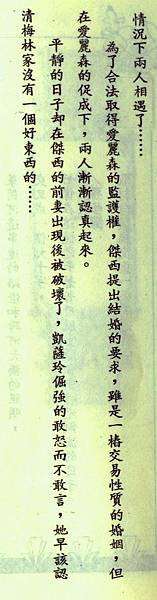 情況下兩人相遇了……
為了合法取得愛麗森的監護權，傑西提出結婚的要求，雖是一樁交易性質的婚姻，但
在愛麗森的促成下，兩人漸漸認真起來。
平靜的日子卻在傑西的前妻出現後被破壞了，凱薩玲倔強的敢怒而不敢言，她早該認
清梅林家沒有一個好東西的……